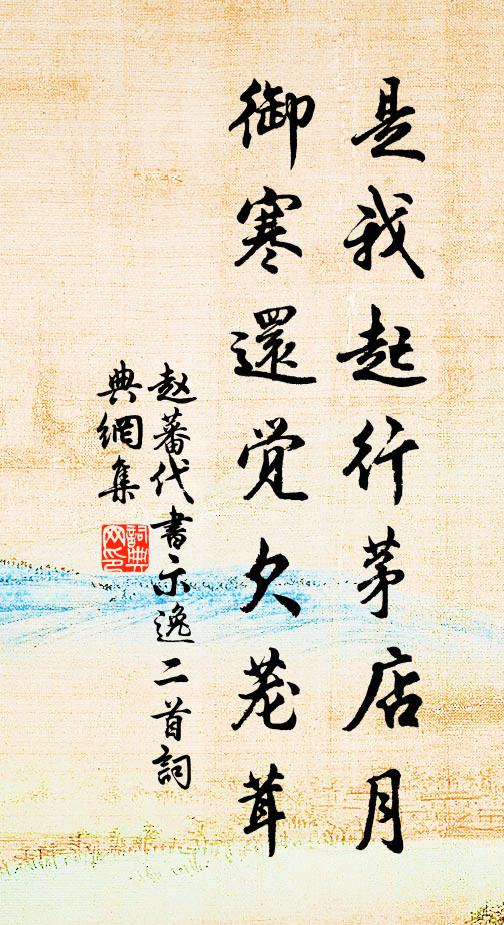 是我起行茅店月
御寒還觉久茏茸
赵蕃代書示逸二首詞
典網集
詞典
网印